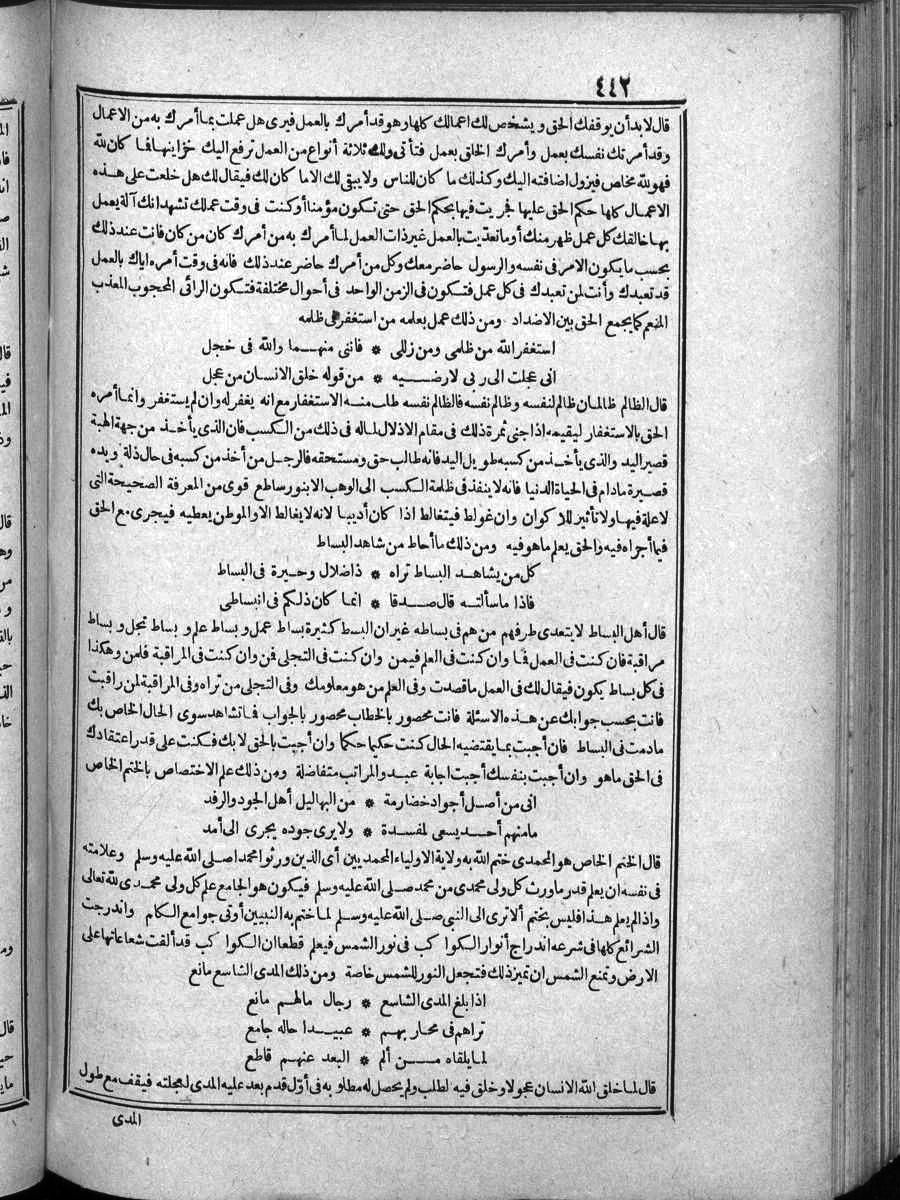 ٤٤٢
قال لا بد أن يوقفك الحق ويشخص لك اعمالك كلها وهو قد أمرك بالعمل فيرى هل عملت بما أمرك به من الاعمال
وقد أمرتك نفسك بعمل وأمرك الخلق بعمل فتأتى ولك ثلاثة أنواع من العمل ترفع اليك خزاينها فما كان لله
فهو لله مخلص فيزول اضافته اليك وكذلك ما كان للناس ولا يبقى لك الا ما كان لك فيقال لك هل خلعت على هذه
الاعمال كلها حكم الحق عليها فجريت فيها بحكم الحق حتى تكون مؤمنا أو كنت فى وقت عملك تشهد انك آلة يعمل
بها خالقك كل عمل ظهر منك أو ما تعديت بالعمل غير ذات العمل لما أمرك به من أمرك كان من كان فانت عند ذلك
بحسب ما يكون الامر فى نفسه والرسول حاضر معك وكل من أمرك حاضر عند ذلك فانه فى وقت أمره اياك بالعمل
قد تعبدك وأنت لمن تعبدك فى كل عمل فتكون فى الزمن الواحد فى أحوال مختلفة فتكون الرائى المحجوب المعذب
المنعم كما يجمع الحق بين الاضداد ومن ذلك عمل بعلمه من استغفر فى ظلمه
استغفر الله من ظلمى ومن زللى * فاننى منهما والله فى خجل
انى عجلت الى ربى لارضيه * من قوله خلق الانسان من عجل
قال الظالم ظالمان ظالم لنفسه وظالم نفسه فالظالم نفسه طلب منه الاستغفار مع انه يغفر له وان لم يستغفر وانما أمره
الحق بالاستغفار ليقيمه اذا جنى ثمرة ذلك فى مقام الاذلال لما له فى ذلك من الكسب فان الذى يأخذ من جهة الهبة
قصير اليد والذى يأخذ من كسبه طويل اليد فانه طالب حق ومستحقه فالرجل من أخذ من كسبه فى حال ذلة ويده
قصيرة مادام فى الحياة الدنيا فانه لا ينفذ فى ظلمة الكسب الى الوهب الا بنور ساطع قوى من المعرفة الصحيحة التى
لا علة فيها ولا تأثير للاكوان وان غولط فيتغالط اذا كان أديبا لانه لا يغالط الا والموطن يعطيه فيجرى مع الحق
فيما أجراه فيه والحق يعلم ما هو فيه ومن ذلك ما أحاط من شاهد البساط
كل من يشاهد البساط تراه * ذا ضلال وحيرة فى البساط
فاذا ما سألته قال صدقا * انما كان ذلكم فى انبساطى
قال أهل البساط لا يتعدى طرفهم من هم فى بساطه غير ان البسط كثيرة بساط عمل وبساط علم وبساط تجل وبساط
مراقبة فان كنت فى العمل فما وان كنت فى العلم فيمن وان كنت فى التجلى فمن وان كنت فى المراقبة فلمن وهكذا
فى كل بساط يكون فيقال لك فى العمل ما قصدت وفى العلم من هو معلومك وفى التجلى من تراه وفى المراقبة لمن راقبت
فانت بحسب جوابك عن هذه الاسئلة فانت محصور بالخطاب محصور بالجواب فما تشاهد سوى الحال الخاص بك
مادمت فى البساط فان أجبت بما يقتضيه الحال كنت حكيما حكما وان أجبت بالحق لا بك فكنت على قدر اعتقادك
فى الحق ما هو وان أجبت بنفسك أجبت اجابة عبد والمراتب متفاضلة ومن ذلك علم الاختصاص بالختم الخاص
انى من أصل أجواد خضارمة * من البهاليل أهل الجود والرفد
ما منهم أحد يسعى لمفسدة * ولا يرى جوده يجرى الى أمد
قال الختم الخاص هو المحمدى ختم الله به ولاية الاولياء المحمديين أى الذين ورثوا محمدا صلى الله عليه وسلم وعلامته
فى نفسه ان يعلم قدر ما ورث كل ولى محمدى من محمد صلى الله عليه وسلم فيكون هو الجامع علم كل ولى محمدى لله تعالى
واذا لم يعلم هذا فليس بختم ألا ترى الى النبى صلى الله عليه وسلم لما ختم به النبيين أوتى جوامع الكلم واندرجت
الشرائع كلها فى شرعه اندراج أنوار الكواكب فى نور الشمس فيعلم قطعا ان الكواكب قد ألقت شعاعاتها على
الارض وتمنع الشمس ان تميز ذلك فتجعل النور للشمس خاصة ومن ذلك المدى الشاسع مانع
اذا بلغ المدى الشاسع * رجال مالهم مانع
تراهم فى محاربهم * عبيدا حاله جامع
لما يلقاه من ألم * البعد عنهم قاطع
قال لما خلق الله الانسان عجولا وخلق فيه لطلب ولم يحصل له مطلوبه فى أول قدم بعد عليه المدى لعجلته فيقف مع طول
المدى